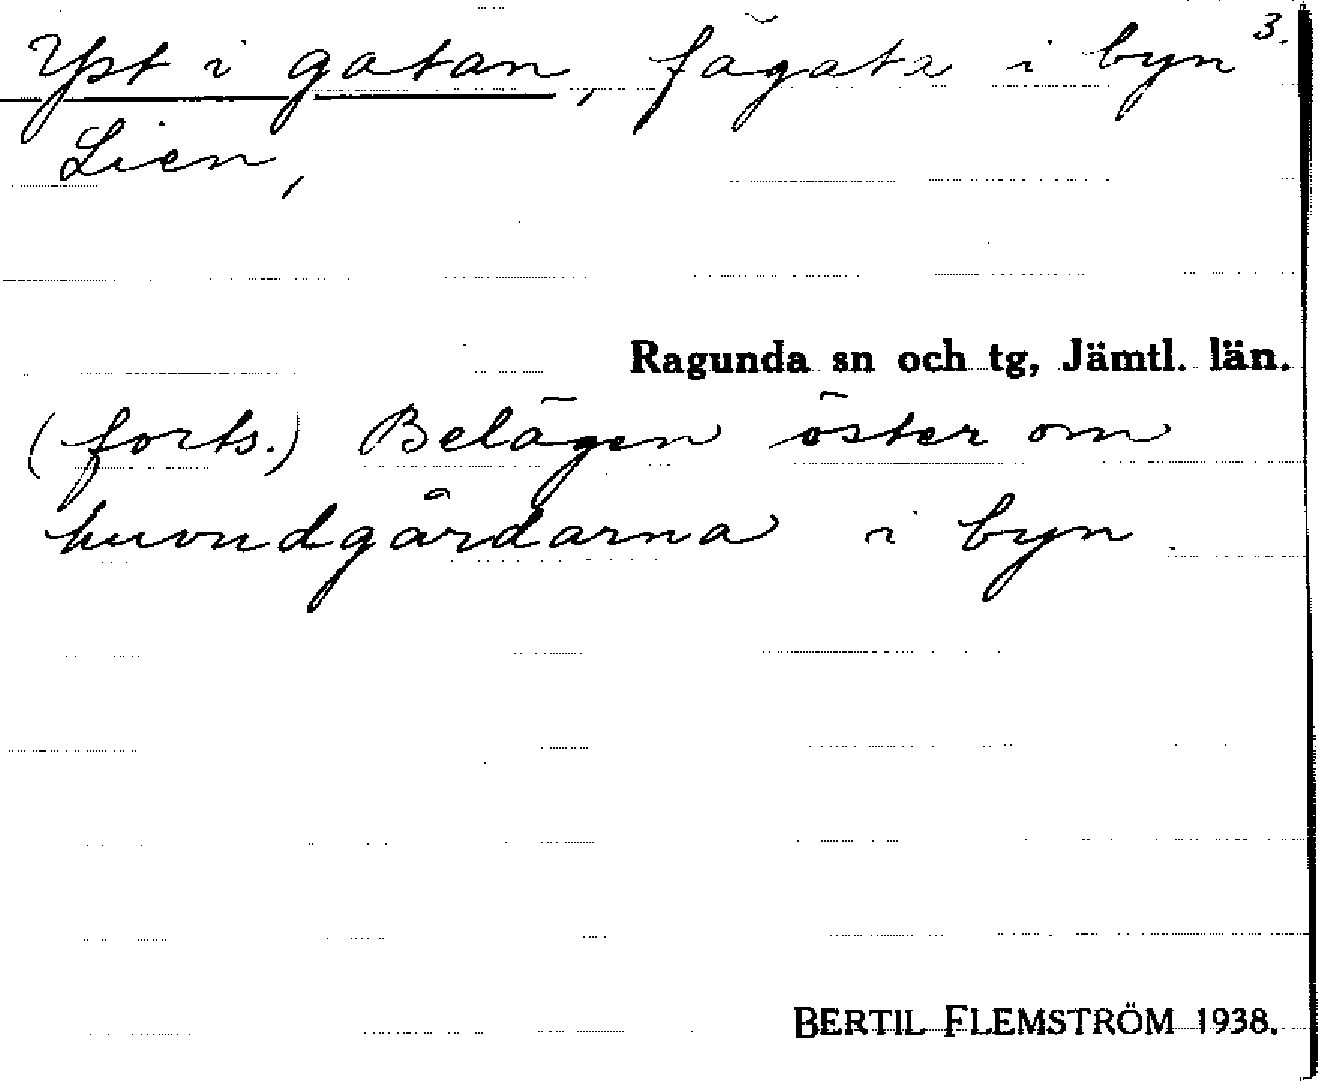 Yst i gatan, fägata i byn 3.
Lien,
Ragunda sn och tg, Jämtl. län.
(forts.) Belägen öster om
huvudgårdarna i byn.
BERTIL FLEMSTRÖM 1938.